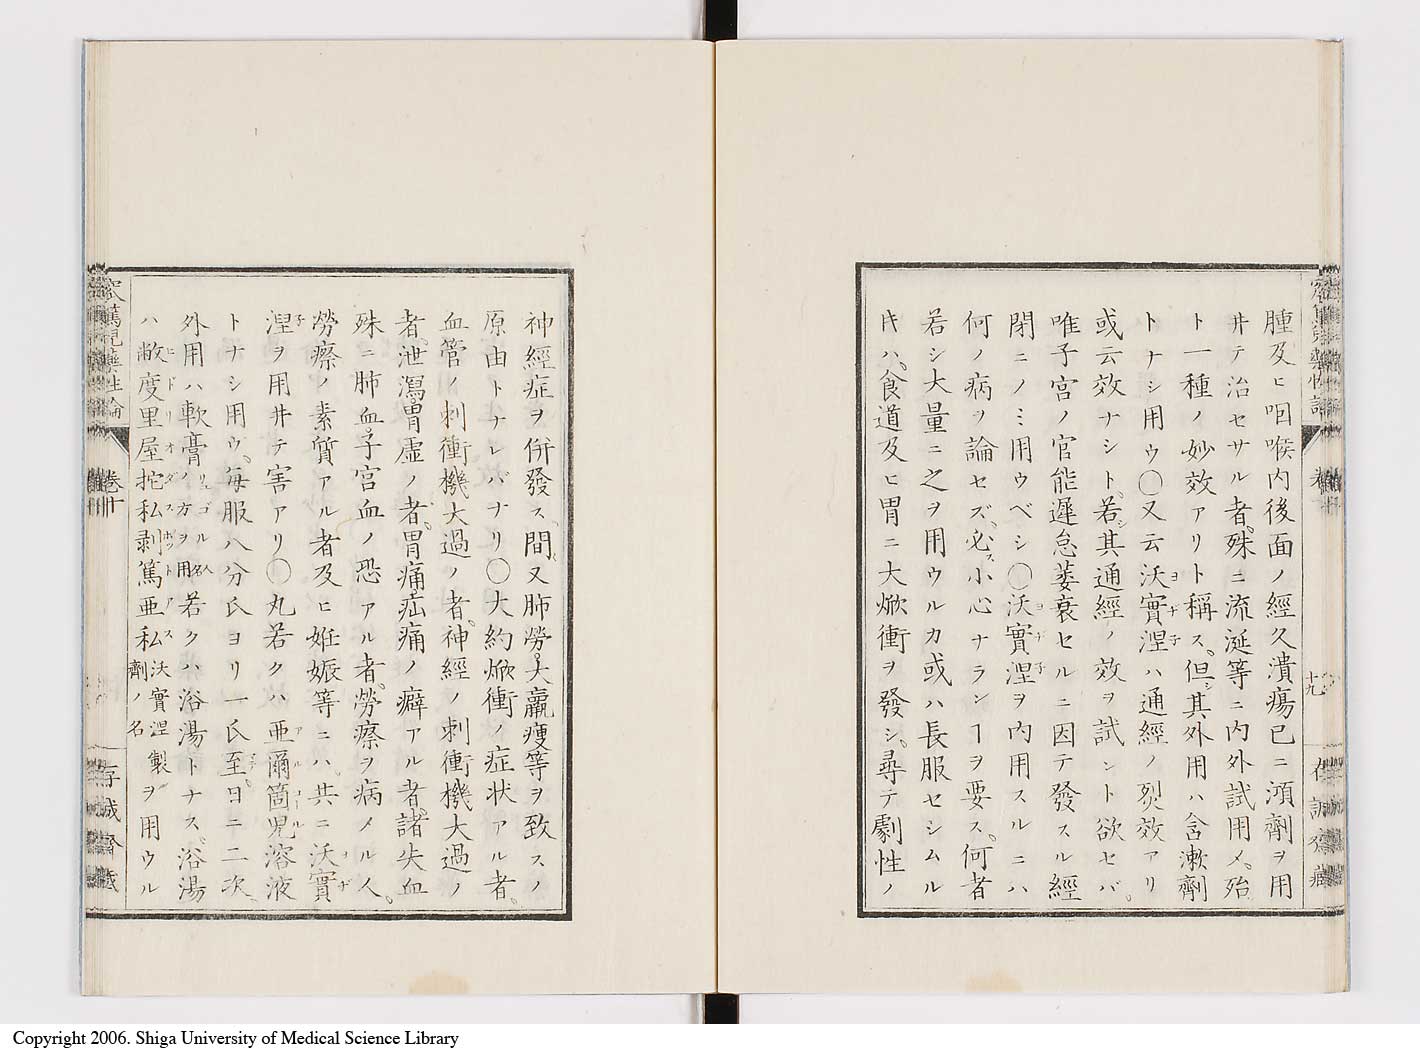 腫及ヒ咽喉内後面ノ經久潰瘍已ニ澒劑ヲ用
井テ治セサル者、殊ニ流涎等ニ内外試用メ、殆
ト一種ノ妙效アリト稱ス、但シ其外用ハ含漱劑
トナシ用ウ〇又云沃實涅ハ通經ノ烈效アリ
或云效ナシト、若シ其通經ノ效ヲ試ント欲セバ、
唯子宮ノ官能遲怠萎衰セルニ因テ發スル經
閉ニノミ用ウベシ〇沃實涅ヲ内用スルニハ
何ノ病ヲ論セズ、必ス小心ナランヿヲ要ス、何者
若シ大量ニ之ヲ用ウルカ或ハ長服セシムル
キハ、食道及ヒ胃ニ大焮衝ヲ發シ、尋テ劇性ノ
十九
神經症ヲ併發ス、間又肺勞、大羸瘦等ヲ致スノ
原由トナレバナリ〇大約焮衝ノ症状アル者、
血管ノ刺衝機大過ノ者、神經ノ刺衝機大過ノ
者、泄瀉、胃虚ノ者、胃痛、疝痛ノ癖アル者、諸失血
殊ニ肺血子宮血ノ恐アル者、勞瘵ヲ病メル人、
勞瘵ノ素質アル者及ヒ姙娠等ニハ、共ニ沃實
涅ヲ用井テ害アリ〇丸若クハ亜爾箇児溶液
トナシ用ウ、毎服八分氏ヨリ一氏至、日ニ二次、
外用ハ軟膏ノ方ヲ用若クハ浴湯トナス、浴湯
ハ敝度里屋扡私剥篤亜私沃實涅製劑ノ名ヲ用ウル
窊篤児藥性論
卷十
存誠齋藏
Copyright 2006. Shiga University of Medical Science Library